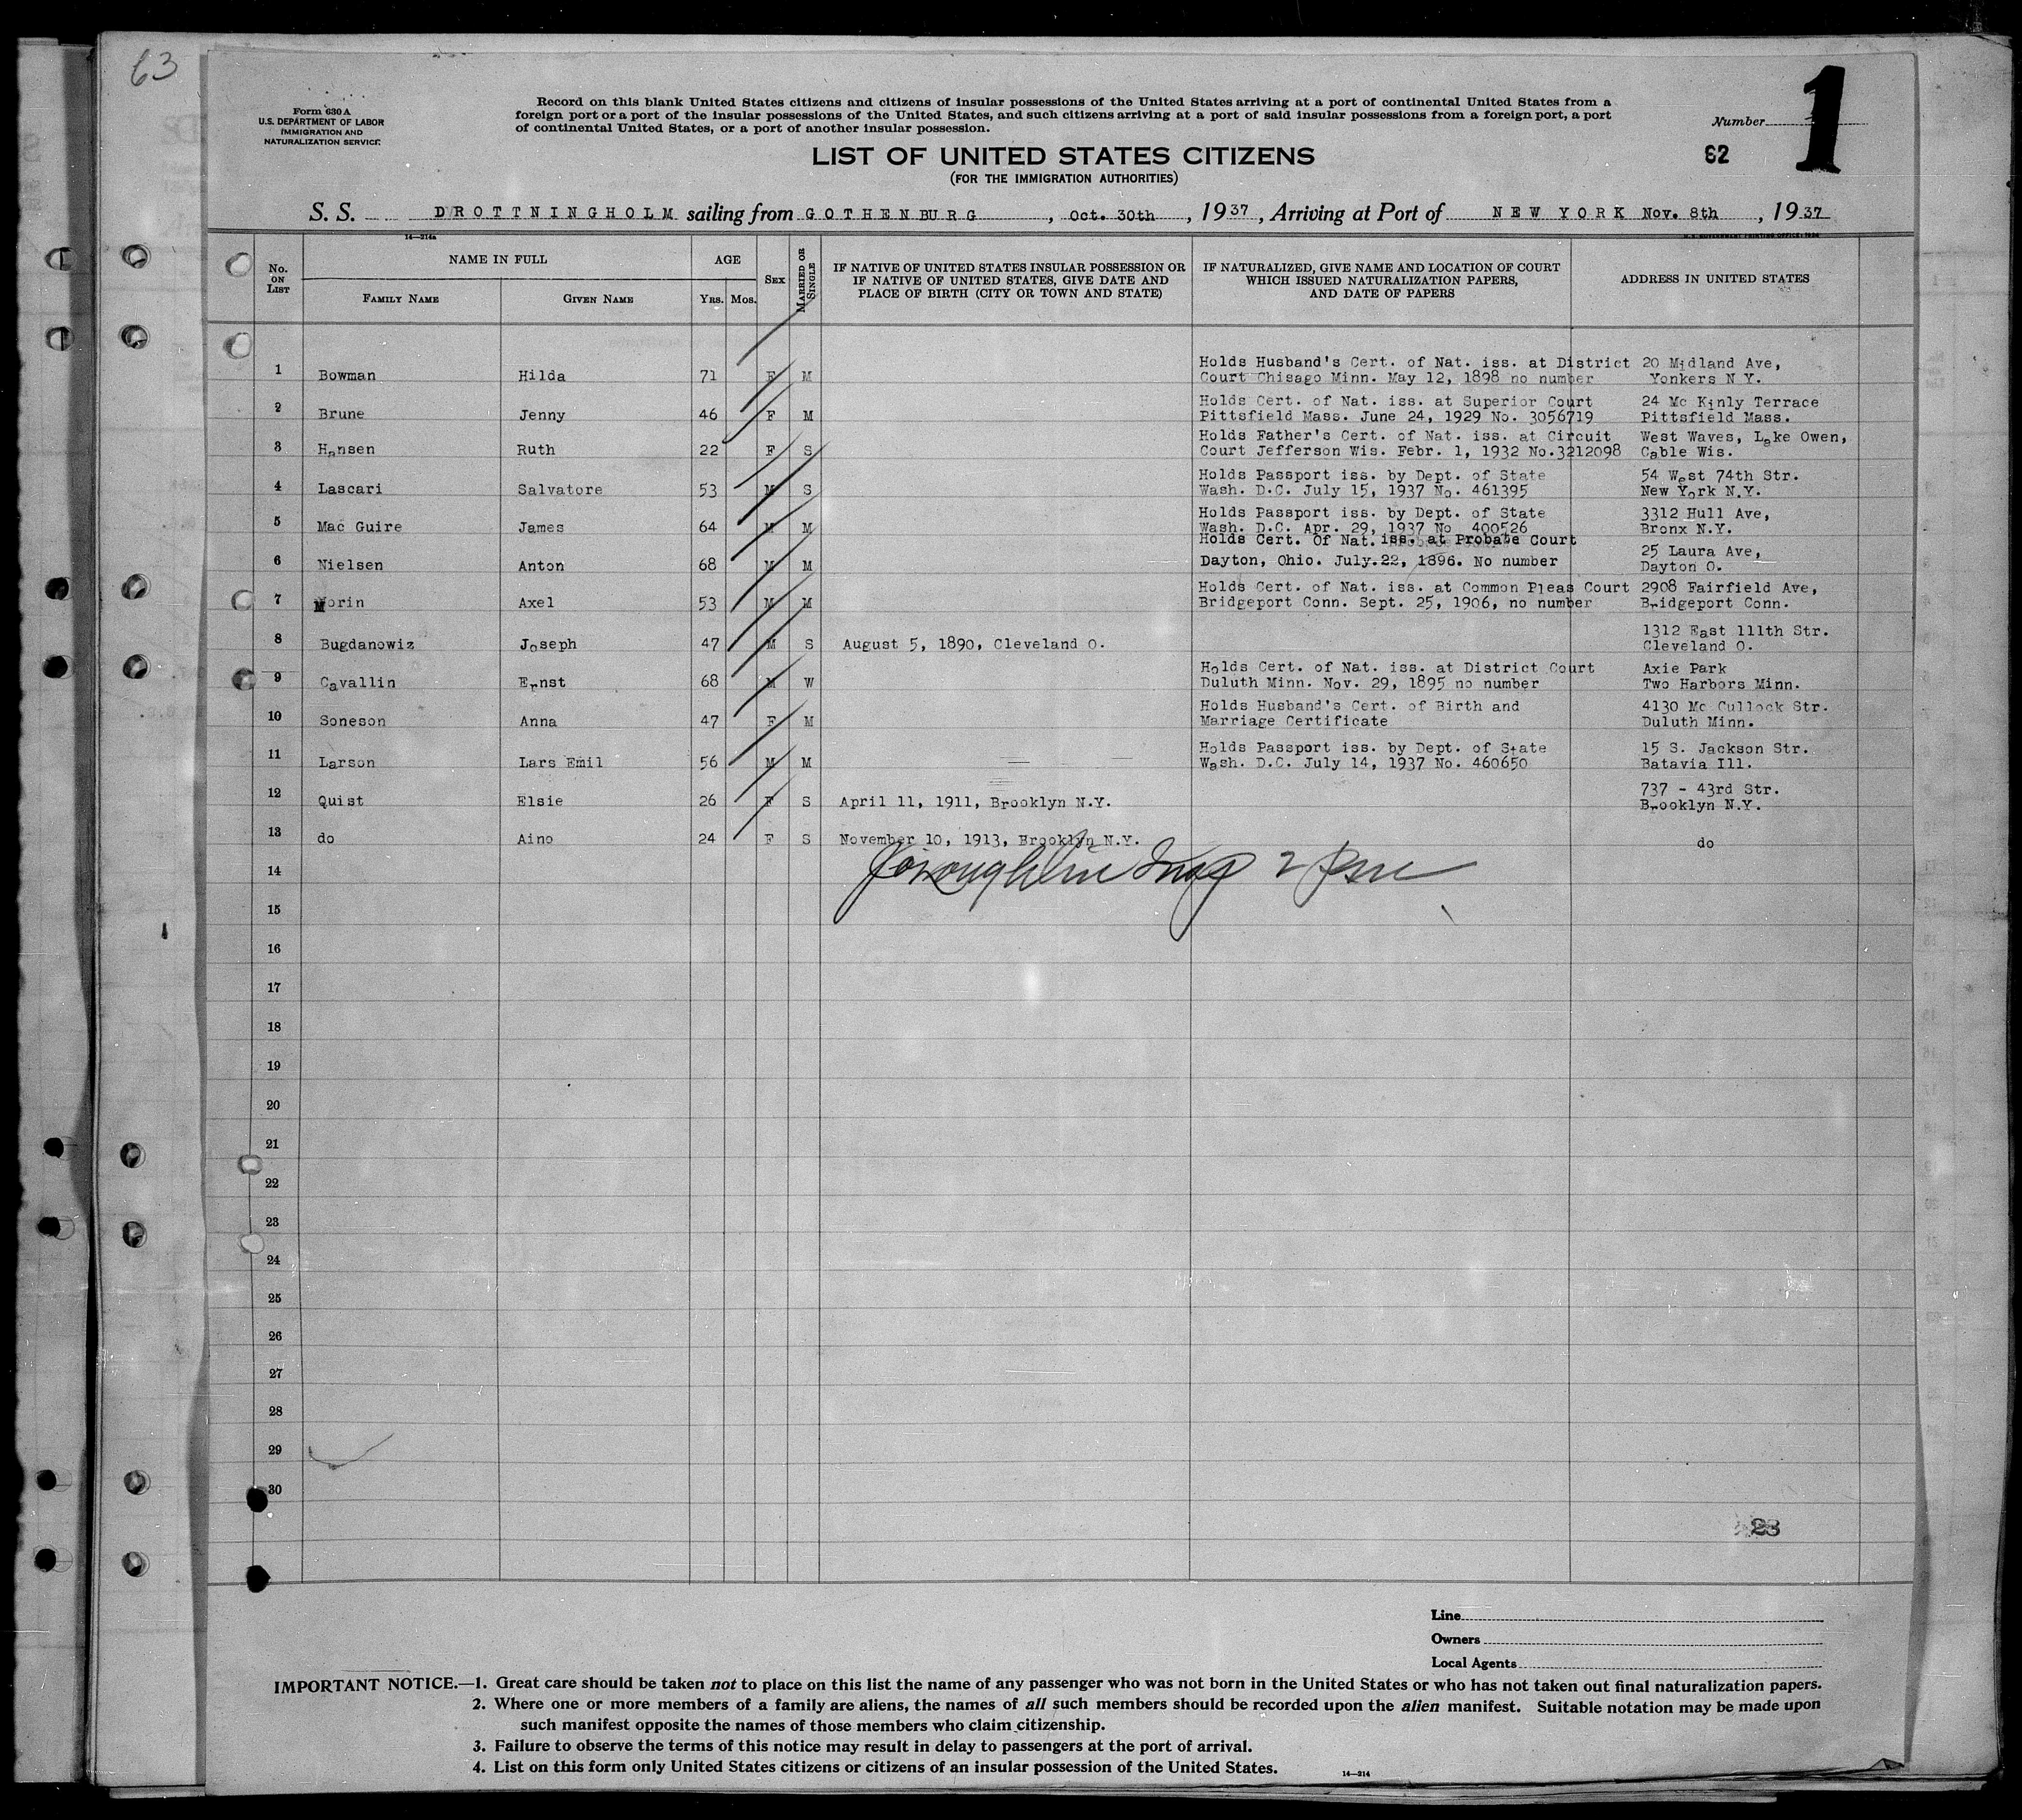 63
Form 630 A
U.S. DEPARTMENT OF LABOR
IMMIGRATION AND
NATURALIZATION SERVICE
Record on this blank United States citizens and citizens of insular possessions of the United States arriving at a port of continental United States from a
foreign port or a port of the insular possessions of the United States, and such citizens arriving at a port of said insular possessions from a foreign port, a port
of continental United States, or a port of another insular possession.
Number
1
62
LIST OF UNITED STATES CITIZENS
(FOR THE IMMIGRATION AUTHORITIES)
S. S. DROTTNINGHOLM sailing from GOTHENBURG, Oct. 30th, 1937, Arriving at Port of NEW YORK Nov. 8th, 1937
14—214a
No. ON LIST
NAME IN FULL
FAMILY NAME
GIVEN NAME
AGE
YRS. MOS.
SEX
MARRIED OR SINGLE
IF NATIVE OF UNITED STATES INSULAR POSSESSION OR
IF NATIVE OF UNITED STATES, GIVE DATE AND
PLACE OF BIRTH (CITY OR TOWN AND STATE)
IF NATURALIZED, GIVE NAME AND LOCATION OF COURT
WHICH ISSUED NATURALIZATION PAPERS,
AND DATE OF PAPERS
ADDRESS IN UNITED STATES
Holds Husband's Cert. of Nat. iss. at District 20 Midland Ave,
1 Bowman Hilda 71 F M Court Chisago Minn. May 12, 1898 no number Yonkers N Y.
Holds Cert. of Nat. iss. at Superior Court 24 Mc Kinly Terrace
2 Brune Jenny 46 F M Pittsfield Mass. June 24, 1929 No. 3056719 Pittsfield Mass.
Holds Father's Cert. of Nat. iss. at Circuit West Waves, Lake Owen,
3 Hansen Ruth 22 F S Court Jefferson Wis. Febr. 1, 1932 No.3212098 Cable Wis.
Holds Passport iss. by Dept. of State 54 West 74th Str.
4 Lascari Salvatore 53 M S Wash. D.C. July 15, 1937 No. 461395 New York N.Y.
Holds Passport iss. by Dept. of State 3312 Hull Ave,
5 Mac Guire James 64 M M Wash. D.C. Apr. 29, 1937 No 400526 Bronx N.Y.
Holds Cert. Of Nat. iss. at Probate Court 25 Laura Ave,
6 Nielsen Anton 68 M M Dayton, Ohio. July.22, 1896. No number Dayton O.
Holds Cert. of Nat. iss. at Common Pleas Court 2908 Fairfield Ave,
7 Morin Axel 53 M M Bridgeport Conn. Sept. 25, 1906, no number Bridgeport Conn.
1312 East 111th Str.
8 Bugdanowiz Joseph 47 M S August 5, 1890, Cleveland O. Cleveland O.
Holds Cert. of Nat. iss. at District Court Axie Park
9 Cavallin Ernst 68 M W Duluth Minn. Nov. 29, 1895 no number Two Harbors Minn.
Holds Husband's Cert. of Birth and 4130 Mc Cullock Str.
10 Soneson Anna 47 F M Marriage Certificate Duluth Minn.
Holds Passport iss. by Dept. of State 15 S. Jackson Str.
11 Larson Lars Emil 56 M M Wash. D.C. July 14, 1937 No. 460650 Batavia Ill.
737 - 43rd Str.
12 Quist Elsie 26 F S April 11, 1911, Brooklyn N.Y. Brooklyn N.Y.
13 do Aino 24 F S November 10, 1913, Brooklyn N.Y. do
14
15
16
17
18
19
20
21
22
23
24
25
26
27
28
29
30
Line
Owners
Local Agents
IMPORTANT NOTICE.—1. Great care should be taken not to place on this list the name of any passenger who was not born in the United States or who has not taken out final naturalization papers.
2. Where one or more members of a family are aliens, the names of all such members should be recorded upon the alien manifest. Suitable notation may be made upon
such manifest opposite the names of those members who claim citizenship.
3. Failure to observe the terms of this notice may result in delay to passengers at the port of arrival.
4. List on this form only United States citizens or citizens of an insular possession of the United States.
14—214